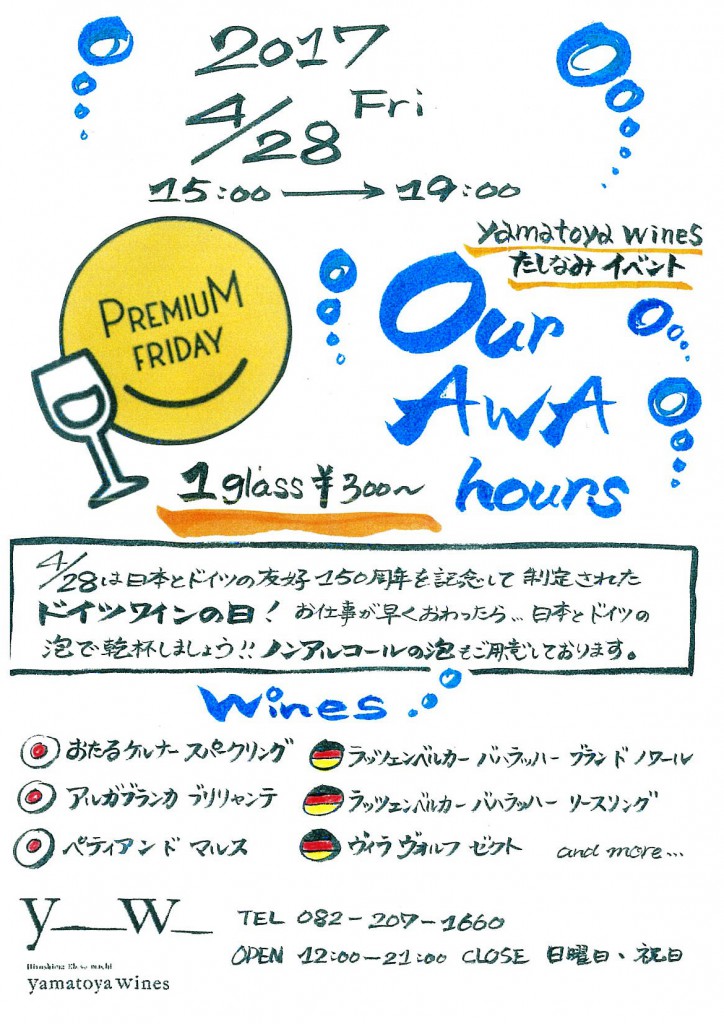 2017
4/28 Fri
15:00 → 19:00
yamatoya wines
たしなみ イベント
PREMIUM
FRIDAY
Our
AWA
hours
1 glass ¥300〜
4/28は日本とドイツの友好150周年を記念して制定された
ドイツワインの日! お仕事が早くおわったら... 日本とドイツの
泡で乾杯しましょう!! ノンアルコールの泡もご用意しております。
Wines
おたるケルナー スパークリング
ラッツェンベルカー バハラッハー ブランド ノワール
アルガブランカ ブリリャンテ
ラッツェンベルカー バハラッハー リースリング
ペティアンド マルス
ヴィラ ヴォルフ ゼクト
and more...
y__w_
TEL 082-207-1660
OPEN 12:00-21:00 CLOSE 日曜日・祝日
yamatoya Wines